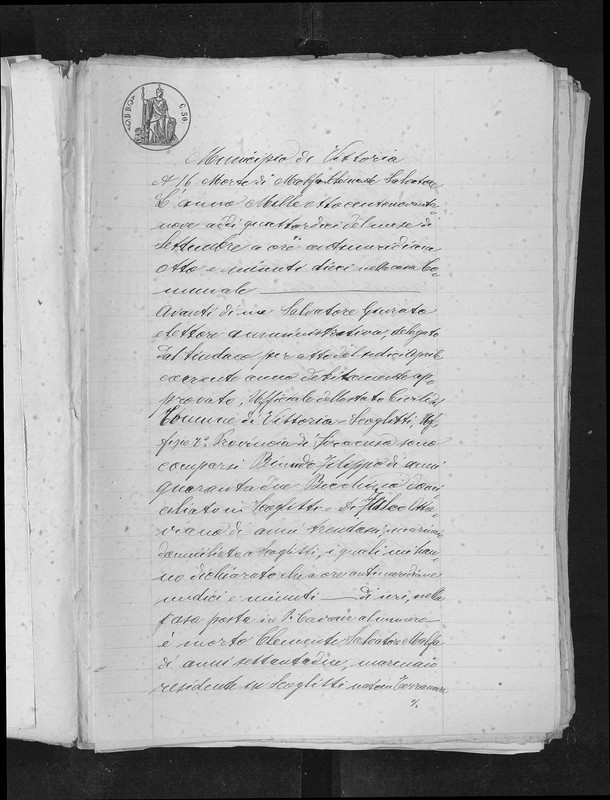 C. 50
Municipio di Vittoria
N 16 Morte di Malfa Clemente Salvatore
L'anno Mille ottocentonovanta
nove addì quattordici del mese di
Settembre a ore antimeridiane
otto e minuti dieci nella casa Co-
munale
Avanti di me Salvatore Giurato
elettore amministrativo, delegato
dal Sindaco per atto del sedici Aprile
corrente anno debitamente ap-
provato, Ufficiale dello Stato Civile del
Comune di Vittoria Scoglitti, Uf-
ficio 2° Provincia di Siracusa sono
comparsi Filippo di anni
quarantadue Becchino domi
ciliato in Scoglitti e di Otta
viano di anni trentasei marinaio
domiciliato a Scoglitti, i quali mi han-
no dichiarato che a ore antimeridiane
undici e minuti — di ieri, nella
casa posta in V. Cavour al numero
è morto Clemente Salvatore Malfa
di anni settantadue, marinaio
residente in Scoglitti nato in Terranova